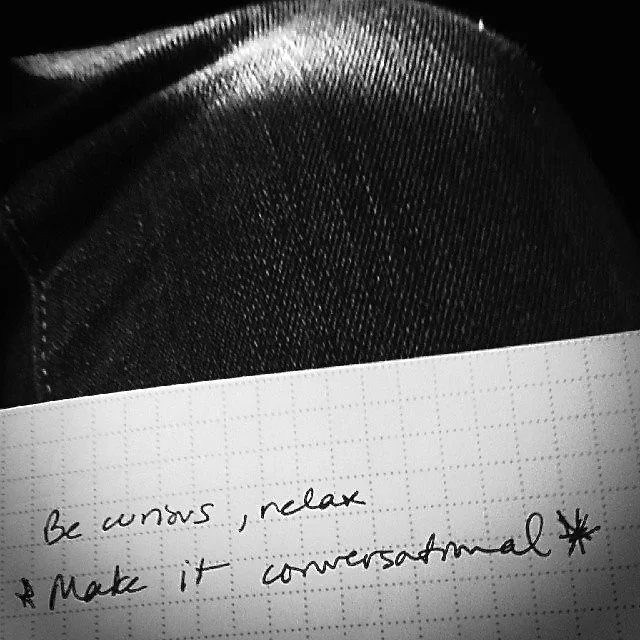 Be curious, relax
* Make it conversational *